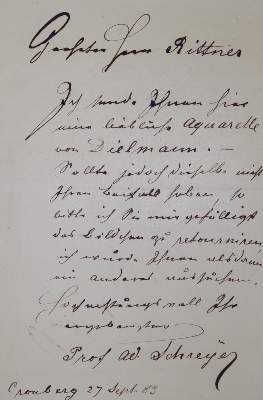 Geehrter Herr Rittner
Ich sende Ihnen hier
eine liebliche Aquarelle
von Dielmann. –
Sollte jedoch dieselbe nicht
Ihren Beifall haben, so
bitte ich Sie mir gefälligst
das Bildchen zu retourniren,
ich würde Ihnen alsdann
ein anderes aussuchen.
Hochachtungsvoll Ihr
ergebenster
Prof Ad. Schreyer
Cronberg 27 Sept. 83